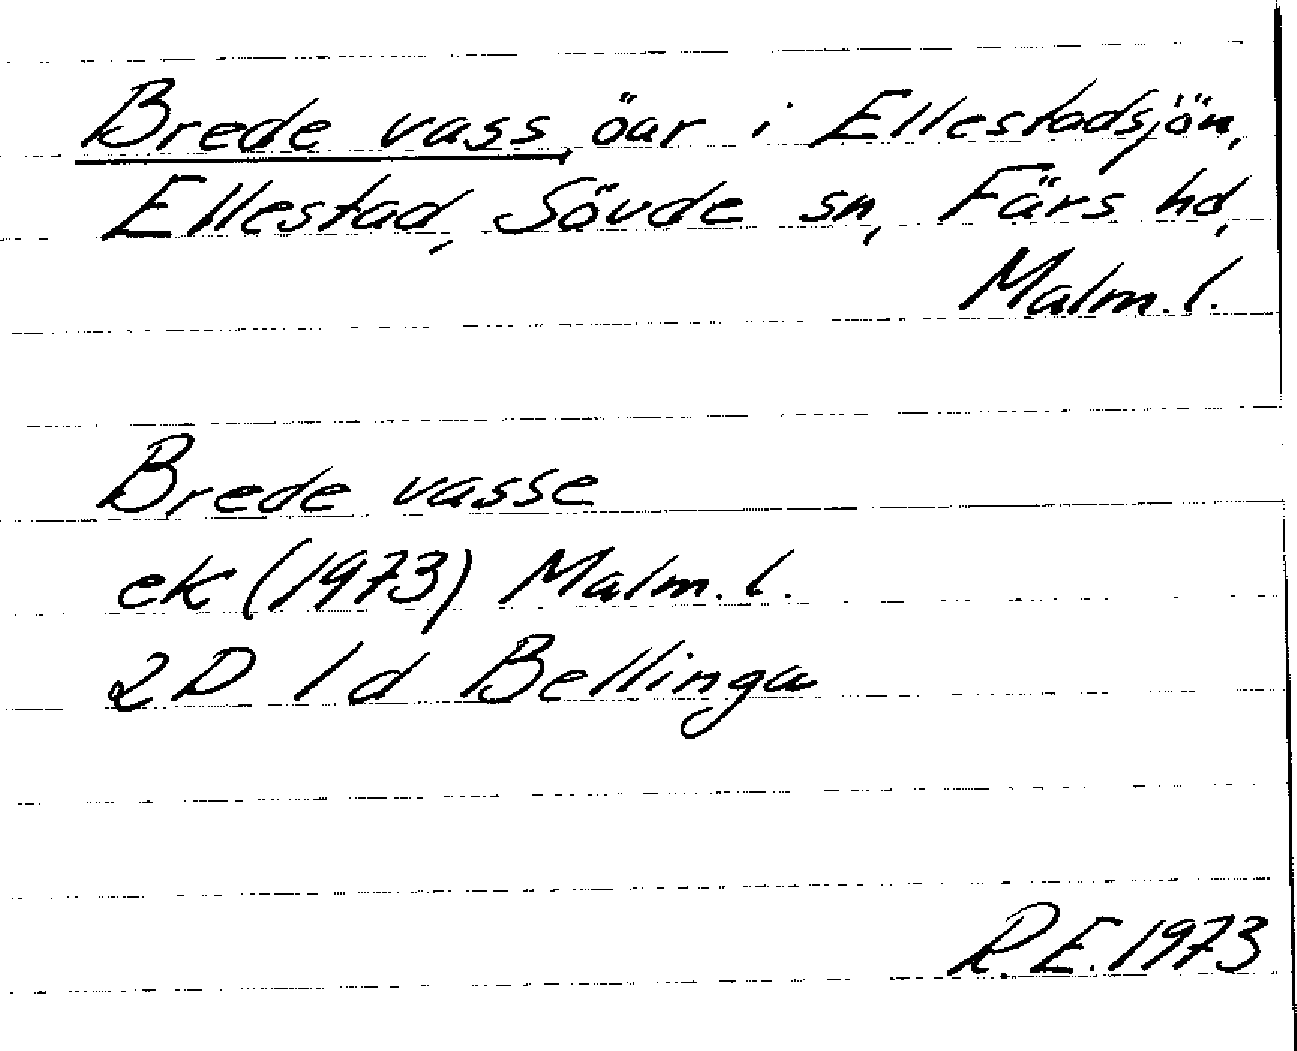 Brede vass, öar i Ellestadsjön,
Ellestad, Sövde sn, Färs hd,
Malm. l.
Brede vasse
ek (1973) Malm. l.
2D 1d Bellinga
R.E. 1973